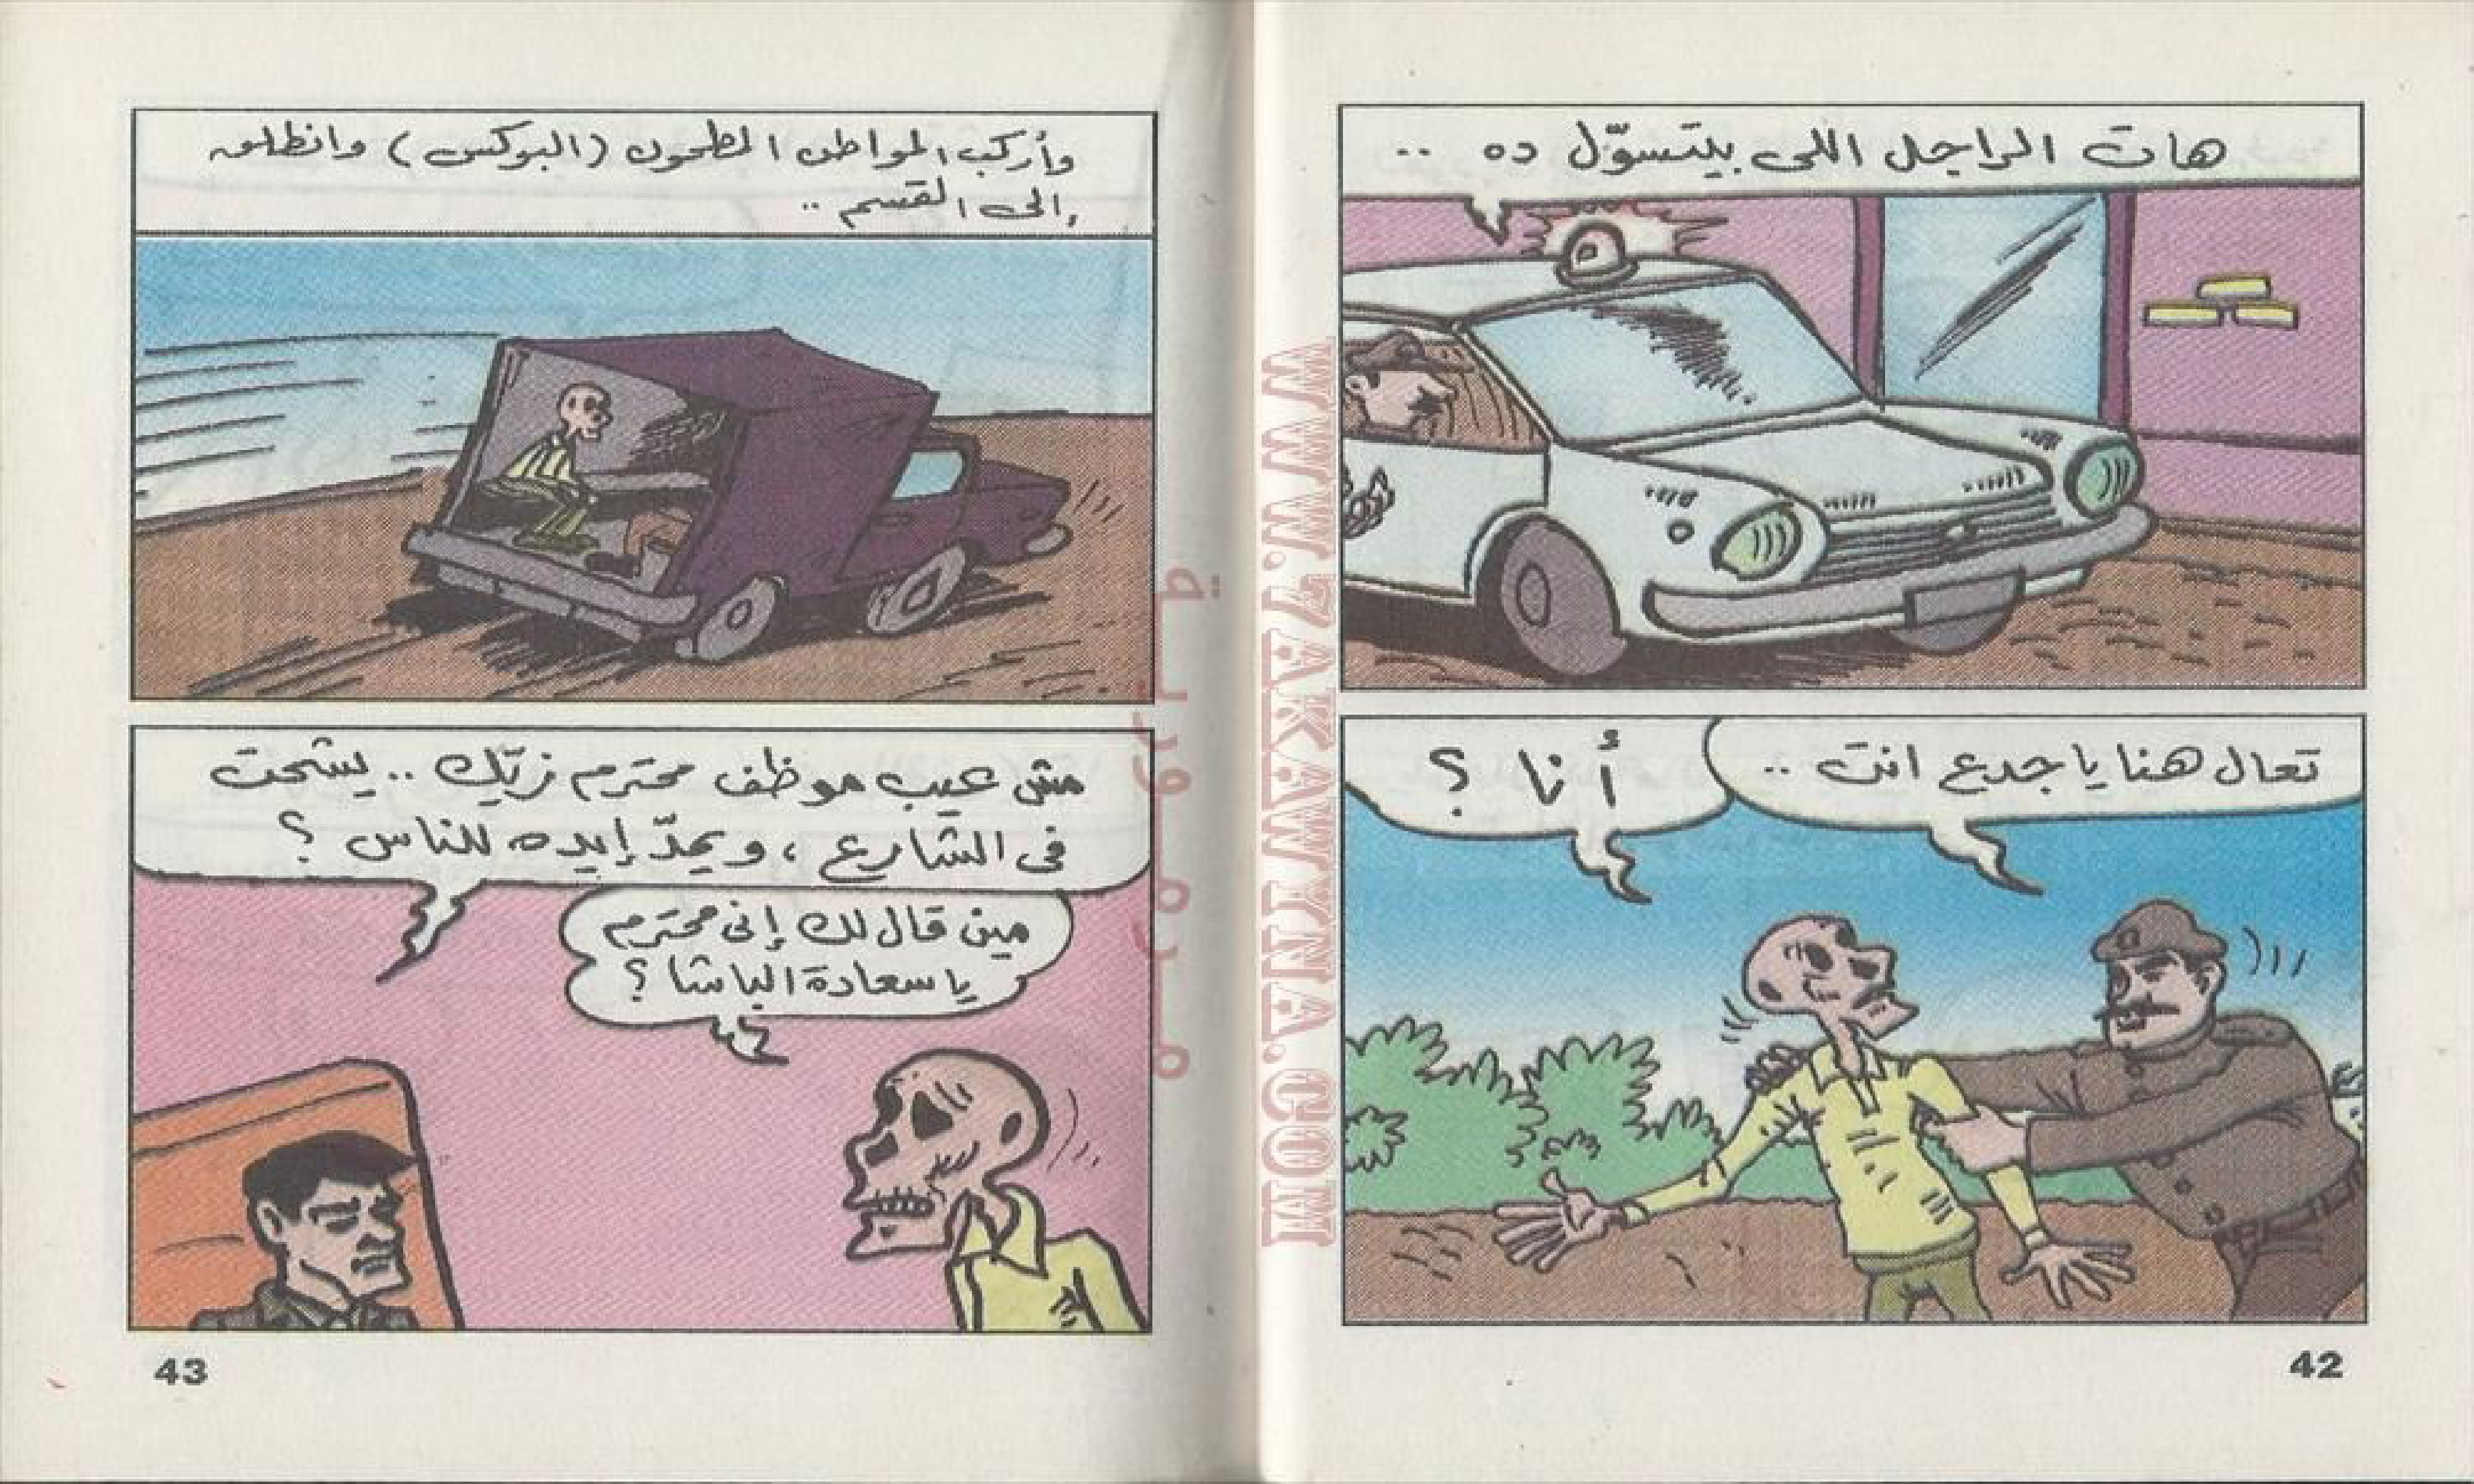 هات الراجل اللى بيتسوّل ده ..
تعال هنا يا جدع انت ..
أنا ؟
42
وأركب المواطن المطحون (البوكس) وانطلق
إلى القسم ..
مش عيب موظف محترم زيّك .. يشحت
فى الشارع ، ويمدّ إيده للناس ؟
مين قال لك إنى محترم
يا سعادة الباشا ؟
43
WWW.7AKAWYNA.COM